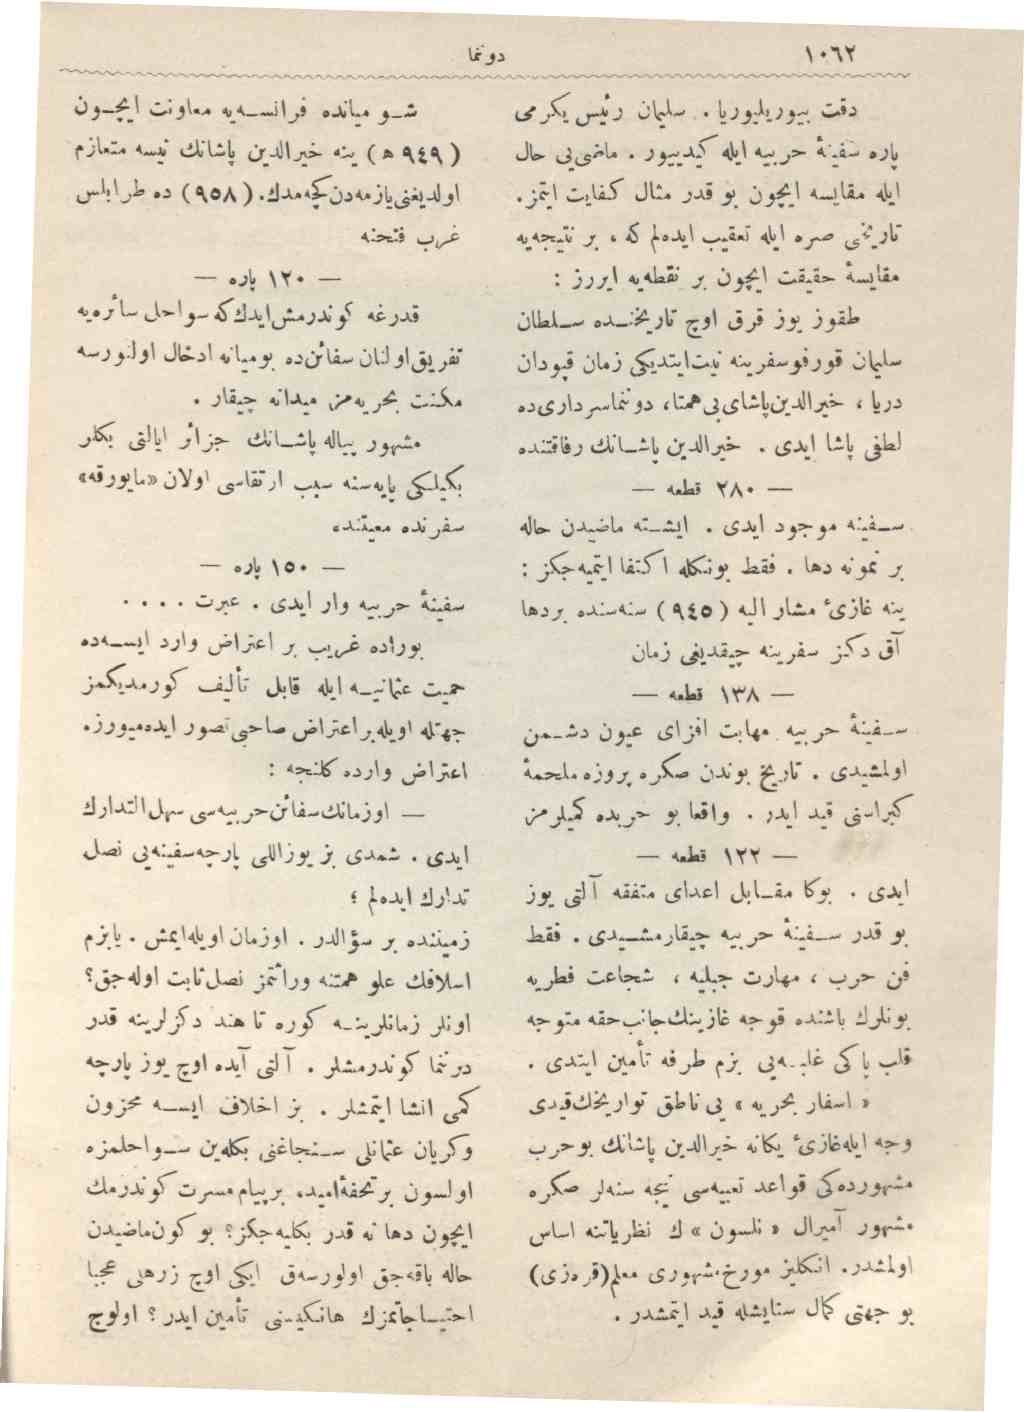 ١٠٦٢
دوننما
دقت بیوریلیوریا . سلیمان رئیس یكرمی
پاره سفینهٔ حربیه ایله كیدییور . ماضی‌یی حال
ایله مقایسه ایچون بو قدر مثال كفایت ایتمز.
تاریخی صره ایله تعقیب ایده‌لم كه ، بر نتیجه‌یه
مقایسهٔ حقیقت ایچون بر نقطه‌یه ایررز :
طقوز یوز قرق اوچ تاریخنـده سـلطان
سلیمان قورفوسفرینه نیت‌ایتدیكی زمان قپودان
دریا ، خیرالدین‌پاشای بی‌همتا، دوننماسرداری‌ده
لطفی پاشا ایدی . خیرالدین پاشـانك رفاقتنده
— ٢٨٠ قطعه —
سـفینه موجود ایدی . ایشـته ماضیدن حاله
بر نمونه دها . فقط بونكله اكتفا ایتمیه‌جكز :
ینه غازیٔ مشار الیه (٩٤٥) سنه‌سنده بردها
آق دكیز سفرینه چیقدیغی زمان
— ١٣٨ قطعه —
سـفینهٔ حربیه مهابت افزای عیون دشـمن
اولمشیدی . تاریخ بوندن صكره پروزه ملحمهٔ
كبراسنی قید ایدر . واقعا بو حربده كمیلرمز
— ١٢٢ قطعه —
ایدی . بوكا مقـابل اعدای متفقه آلتی یوز
بو قدر سـفینهٔ حربیه چیقارمشـیدی . فقط
فن حرب ، مهارت جبلیه ، شجاعت فطریه
بونلرك باشنده قوجه غازینك‌جانب‌حقه متوجه
قلب پاكی غلبـه‌یی بزم طرفه تأمین ایتدی .
« اسفار بحریه » یی ناطق تواریخك‌قیدی
وجه ایله‌غازیٔ یكانه خیرالدین پاشانك بوحرب
مشهورده‌كی قواعد تعبیه‌سی نیجه سنه‌لر صكره
مشهور آمیرال « نلسون » ك نظریاتنه اساس
اولمشدر. انكلیز مورخ‌مشهوری معلم(قره‌زی)
بو جهتی كمال ستایشله قید ایتمشدر .
شـو میانده فرانسـه‌یه معاونت ایچـون
(٩٤٩ ه) ینه خیرالدین پاشانك نیسه متعازم
اولدیغنی‌یازمه‌دن‌كچه‌مدك. (٩٥٨) ده طرابلس
غرب فتحنه
— ١٢٠ پاره —
قدرغه كوندرمش‌ایدك‌كه سواحل سائره‌یه
تفریق‌اولنان سفائن‌ده بومیانه ادخال اولنورسه
مكنت بحریه‌مز میدانه چیقار .
مشهور پیاله پاشـانك جزائر ایالتی بكلر
بكیلـكی پایه‌سنه سبب ارتقاسی اولان«مایورقه»
سفرنده معیتنده
— ١٥٠ پاره —
سفینهٔ حربیه وار ایدی . عبرت . . . .
بوراده غریب بر اعتراض وارد ایسـه‌ده
حمیت عثمانیـه ایله قابل تألیف كورمدیكمز
جهتله اویله‌براعتراض صاحبی‌تصور ایده‌میورز.
اعتراض وارده كلنجه :
— اوزمانك‌سفائن‌حربیه‌سی سهل‌التدارك
ایدی . شمدی بز یوزاللی پارچه‌سفینه‌یی نصل
تدارك ایده‌لم ؟
زمیننده بر سؤالدر . اوزمان اویله‌ایمش . یابزم
اسلافك علو همتنه وراثتمز نصل‌ثابت اوله‌جق؟
اونلر زمانلرینـه كوره تا هند دكزلرینه قدر
دوننما كوندرمشلر . آلتی آیده اوچ یوز پارچه
كمی انشا ایتمشلر . بز اخلاف ایسـه محزون
وكریان عثمانلی سـنجاغنی بكله‌ین سـواحلمزه
اولسون برتحفهٔ‌امید، برپیام‌مسرت كوندرمك
ایچون دها نه قدر بكلیه‌جكز؟ بو كون‌ماضیدن
حاله باقه‌جق اولورسه‌ق ایكی اوچ زرهلی عجبا
احتیـاجاتمزك هانكیسنی تأمین ایدر؟ اولوج